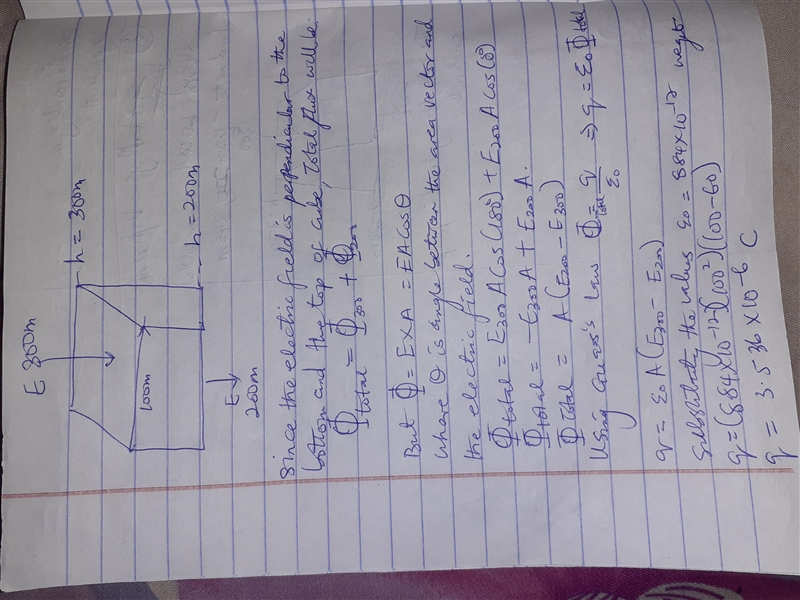 E 300m
h = 300m
100m
h = 200m
E
200m
Since the electric field is perpendicular to the
bottom and the top of cube, Total flux will be.
Φtotal = Φ300 + Φ200
But Φ = E×A = EA cosθ
where θ is angle between the area vector and
the electric field.
Φtotal = E300 A cos(180°) + E200 A cos(0°)
Φtotal = -E300A + E200A.
Φtotal = A(E200 - E300)
Using Gauss's law Φtotal = q/ε0 ⇒ q = ε0 Φtotal
q = ε0 A(E300 - E200)
Substituting the values ε0 = 8.84×10⁻¹²
q = (8.84×10⁻¹²)(100²)(100-60)
q = 3.536×10⁻⁶ C